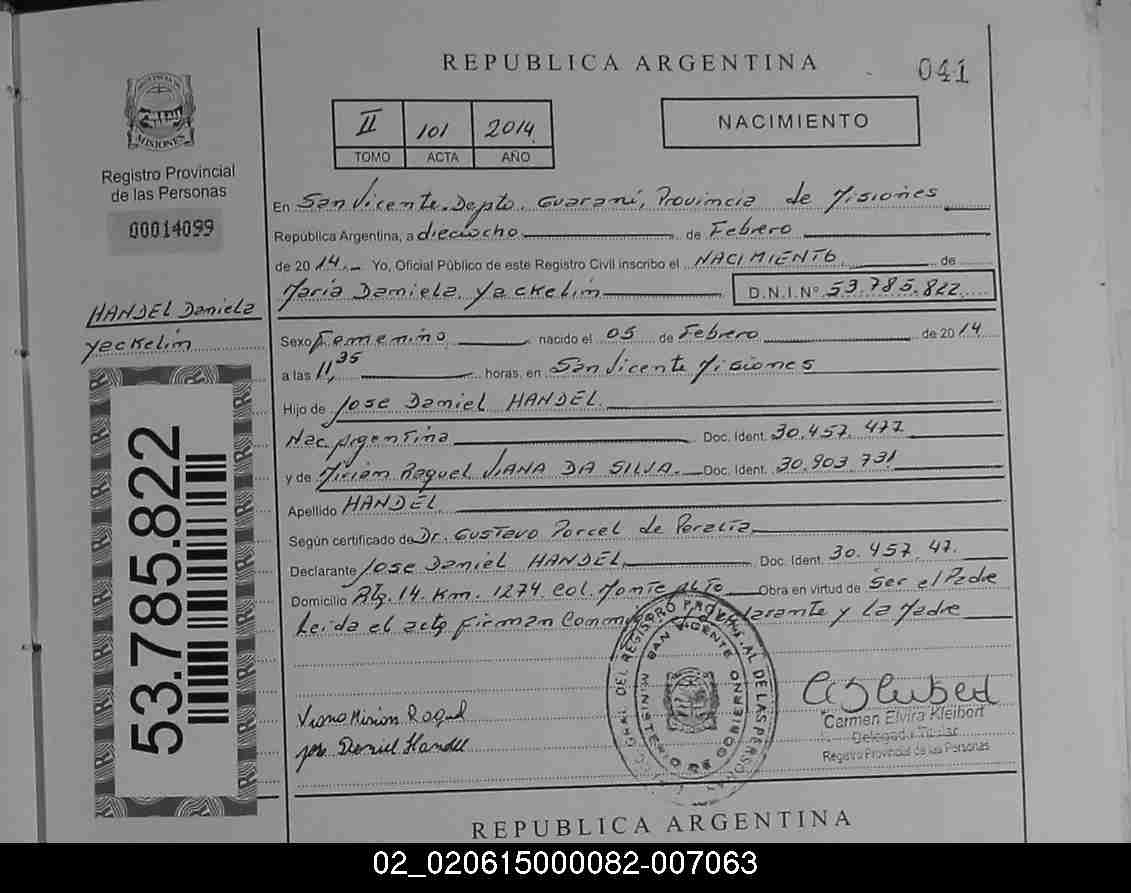 REPUBLICA ARGENTINA
041
PROVINCIA DE MISIONES
Registro Provincial
de las Personas
00014099
II 101 2014
TOMO ACTA AÑO
NACIMIENTO
En San Vicente. Depto. Guaraní, Provincia de Misiones
República Argentina, a dieciocho de Febrero
de 2014. Yo, Oficial Público de este Registro Civil inscribo el NACIMIENTO de
María Daniela Yackelin D.N.I.Nº 53.785.822
HANDEL Daniela
Yackelin
Sexo Femenino nacido el 05 de Febrero de 2014
a las 11,35 horas, en San Vicente Misiones
Hijo de Jose Daniel HANDEL
Nac. Argentina Doc. Ident. 30.457.477
y de Miriam Raquel VIANA DA SILVA. Doc. Ident. 30.903.731
Apellido HANDEL
Según certificado de Dr. Gustavo Porcel de Peralta
Declarante Jose Daniel HANDEL Doc. Ident. 30.457.47.
Domicilio Rta. 14. Km. 1274 Col. Monte Alto Obra en virtud de Ser el Padre
Leida el acta firman y la Madre
53.785.822
Viana Miriam Raquel
Jose Daniel Handel
SAN VICENTE
MINISTERIO DE GOBIERNO
Carmen Elvira Kleibort
Delegada Titular
Registro Provincial de las Personas
REPUBLICA ARGENTINA
02_020615000082-007063